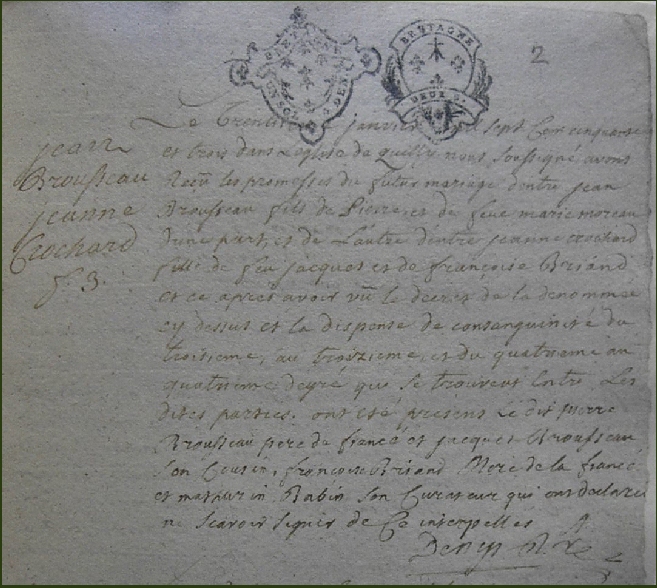 BRETAGNE
DEUX S.
2
jean
Brousseau
jeanne
Crochard
f. 3.
Le janvier sept Cen cinquante
et trois dans L'eglise de Quilly, nous Soussigné, avons
Reçu les promesses du futur mariage d'entre jean
Brousseau fils de Pierre, et de feue marie moreau
d'une part, et de L'autre d'entre jeanne Crochard
fille de feu jacques et de françoise Briand
et ce apres avoir vû le decret de la denommée
cy dessus et la dispense de consanguinité du
troisieme, au troizieme, et du quatrieme au
quatrieme degré qui se trouvent Entre Les
dites parties. ont eté presens Le dit pierre
Brousseau pere de fiancé et jacques Brousseau
Son Cousin, françoise Briand Mere de la fiancé
et mathurin Babin Son Curateur qui ont declaré
ne Scavoir Signer de Ce interpelles